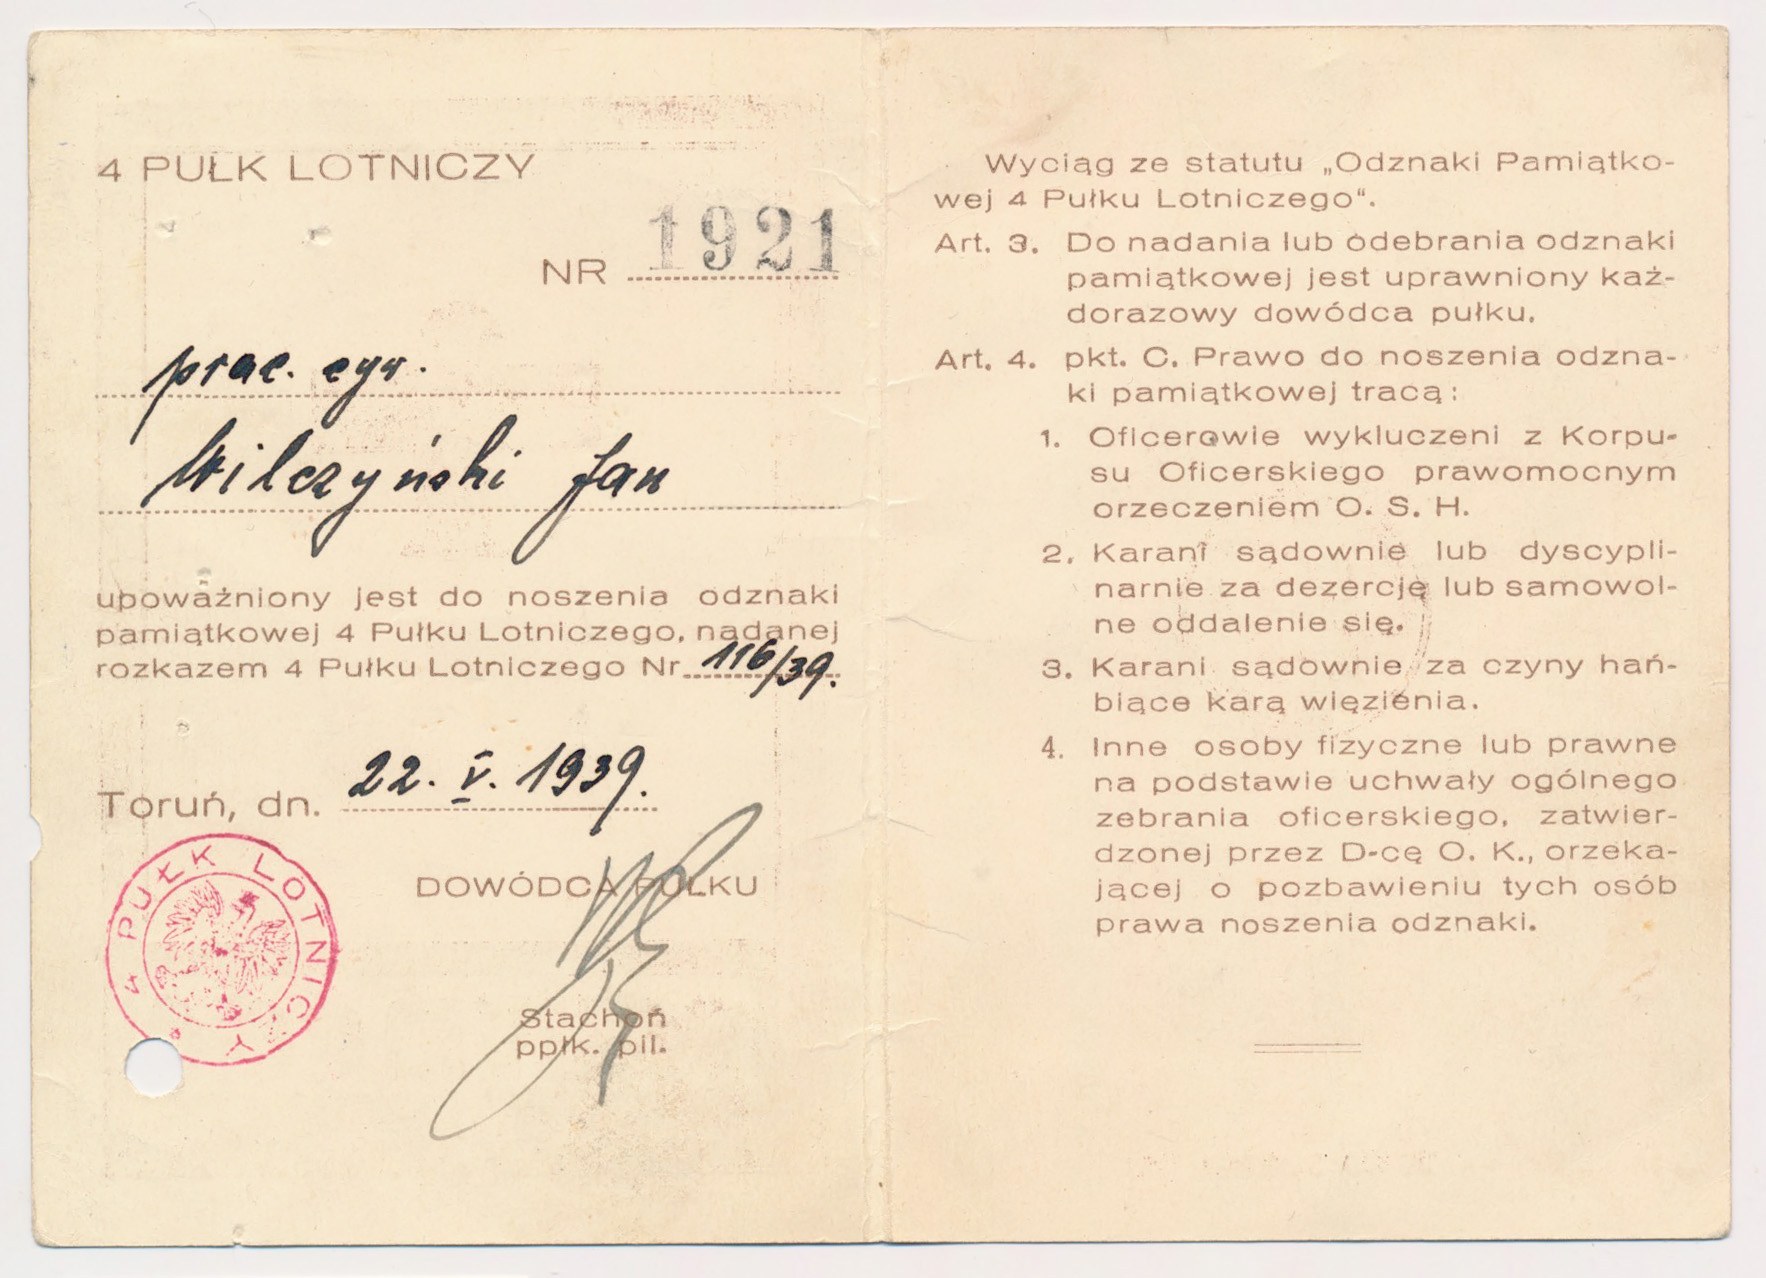 4 PUŁK LOTNICZY
NR 1921
prac. cyw.
Wilczyński Jan
upoważniony jest do noszenia odznaki
pamiątkowej 4 Pułku Lotniczego, nadanej
rozkazem 4 Pułku Lotniczego Nr 116/39.
Toruń, dn. 22. V. 1939.
4 PUŁK LOTNICZY
DOWÓDCA PUŁKU
Stachoń
ppłk. pil.
Wyciąg ze statutu „Odznaki Pamiątko-
wej 4 Pułku Lotniczego“.
Art. 3. Do nadania lub odebrania odznaki
pamiątkowej jest uprawniony każ-
dorazowy dowódca pułku.
Art. 4. pkt. C. Prawo do noszenia odzna-
ki pamiątkowej tracą:
1. Oficerowie wykluczeni z Korpu-
su Oficerskiego prawomocnym
orzeczeniem O. S. H.
2. Karani sądownie lub dyscypli-
narnie za dezercję lub samowol-
ne oddalenie się.
3. Karani sądownie za czyny hań-
biące karą więzienia.
4. Inne osoby fizyczne lub prawne
na podstawie uchwały ogólnego
zebrania oficerskiego, zatwier-
dzonej przez D-cę O. K., orzeka-
jącej o pozbawieniu tych osób
prawa noszenia odznaki.